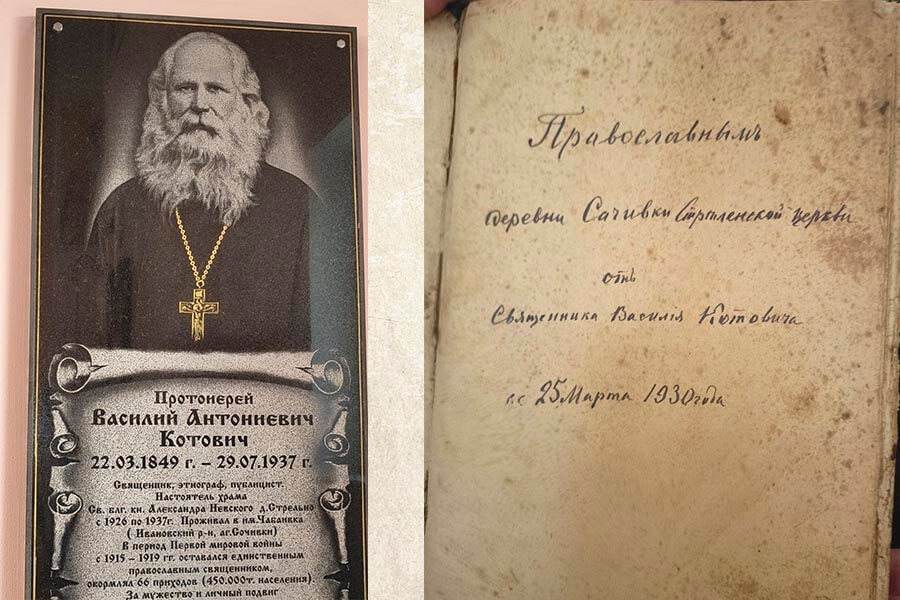 Протоиерей
Василий Антониевич
Котович
22.03.1849 г. – 29.07.1937 г.
Священник, этнограф, публицист.
Настоятель храма
Св. блг. кн. Александра Невского д.Стрельно
с 1926 по 1937г. Проживал в им.Чабаивка
( Ивановский р-н, аг.Сочивки)
В период Первой мировой войны
с 1915 – 1919 гг. оставался единственным
православным священником,
окормлял 66 приходов (450.000т. населения)
За мужество и личный подвиг
Православнымъ
деревни Сачивки Стрѣленской церкви
отъ
Священника Василія Котовича
25 Марта 1930 года